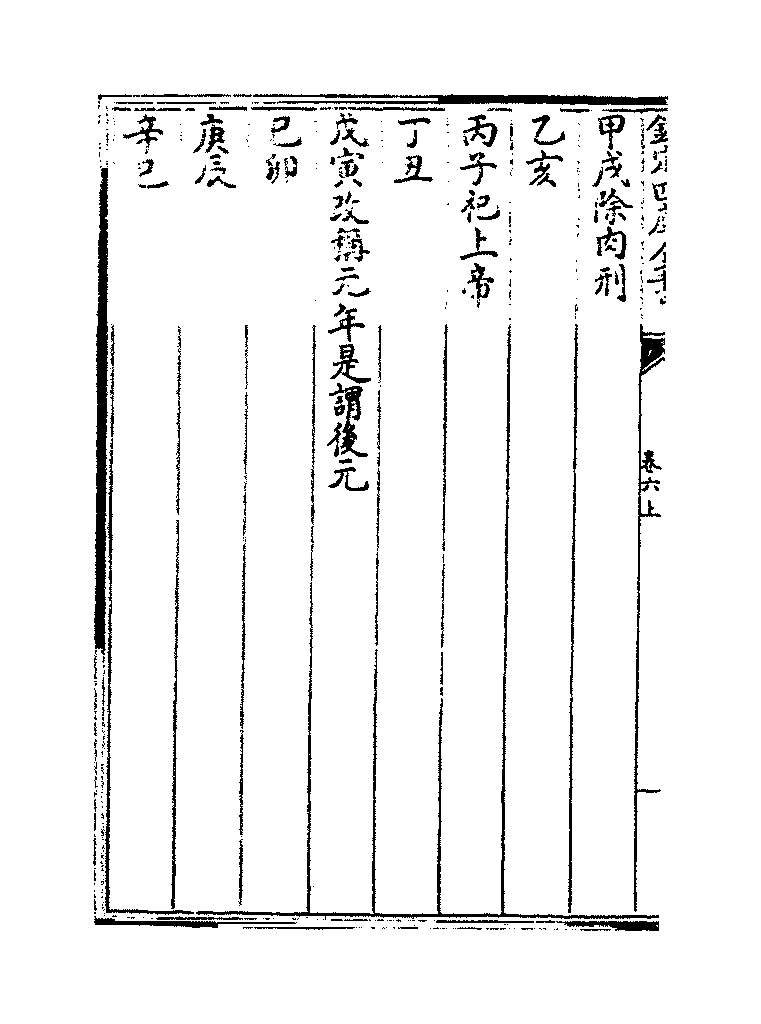 欽定四庫全書
卷六上
甲戌除肉刑
乙亥
丙子祀上帝
丁丑
戊寅改稱元年是謂後元
己卯
庚辰
辛巳